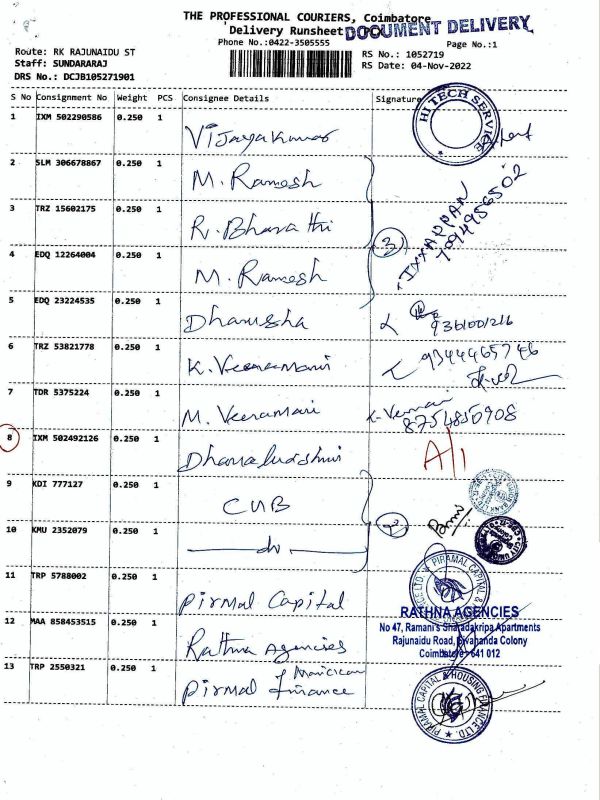 THE PROFESSIONAL COURIERS, Coimbatore
Delivery Runsheet
DOCUMENT DELIVERY
Phone No.:0422-3505555
Page No.:1
Route: RK RAJUNAIDU ST
RS No.: 1052719
Staff: SUNDARARAJ
RS Date: 04-Nov-2022
DRS No.: DCJB105271901
S No Consignment No Weight PCS Consignee Details Signature
1 IXM 502290586 0.250 1 Vijayakumar
HI TECH SERVICE
2 SLM 306678867 0.250 1 M. Ramesh
3 TRZ 15602175 0.250 1 R. Bharathi
3
IYYAPPAN
7094956502
4 EDQ 12264004 0.250 1 M. Ramesh
5 EDQ 23224535 0.250 1 Dhanusha
9361001216
6 TRZ 53821778 0.250 1 K. Veeramani
9344465746
7 TDR 5375224 0.250 1 M. Veeramari
8754850908
8 IXM 502492126 0.250 1 Dhanalakshmi
9 KDI 777127 0.250 1 CUB
2
10 KMU 2352079 0.250 1 do
11 TRP 5788002 0.250 1 Pirmal Capital
PIRAMAL CAPITAL &
RATHNA AGENCIES
No 47, Ramani's Sharadakripa Apartments
Rajunaidu Road, Sivananda Colony
Coimbatore - 641 012
12 MAA 858453515 0.250 1 Rathna Agencies
13 TRP 2550321 0.250 1 Pirmal Finance
PIRAMAL CAPITAL & HOUSING FINANCE LTD.